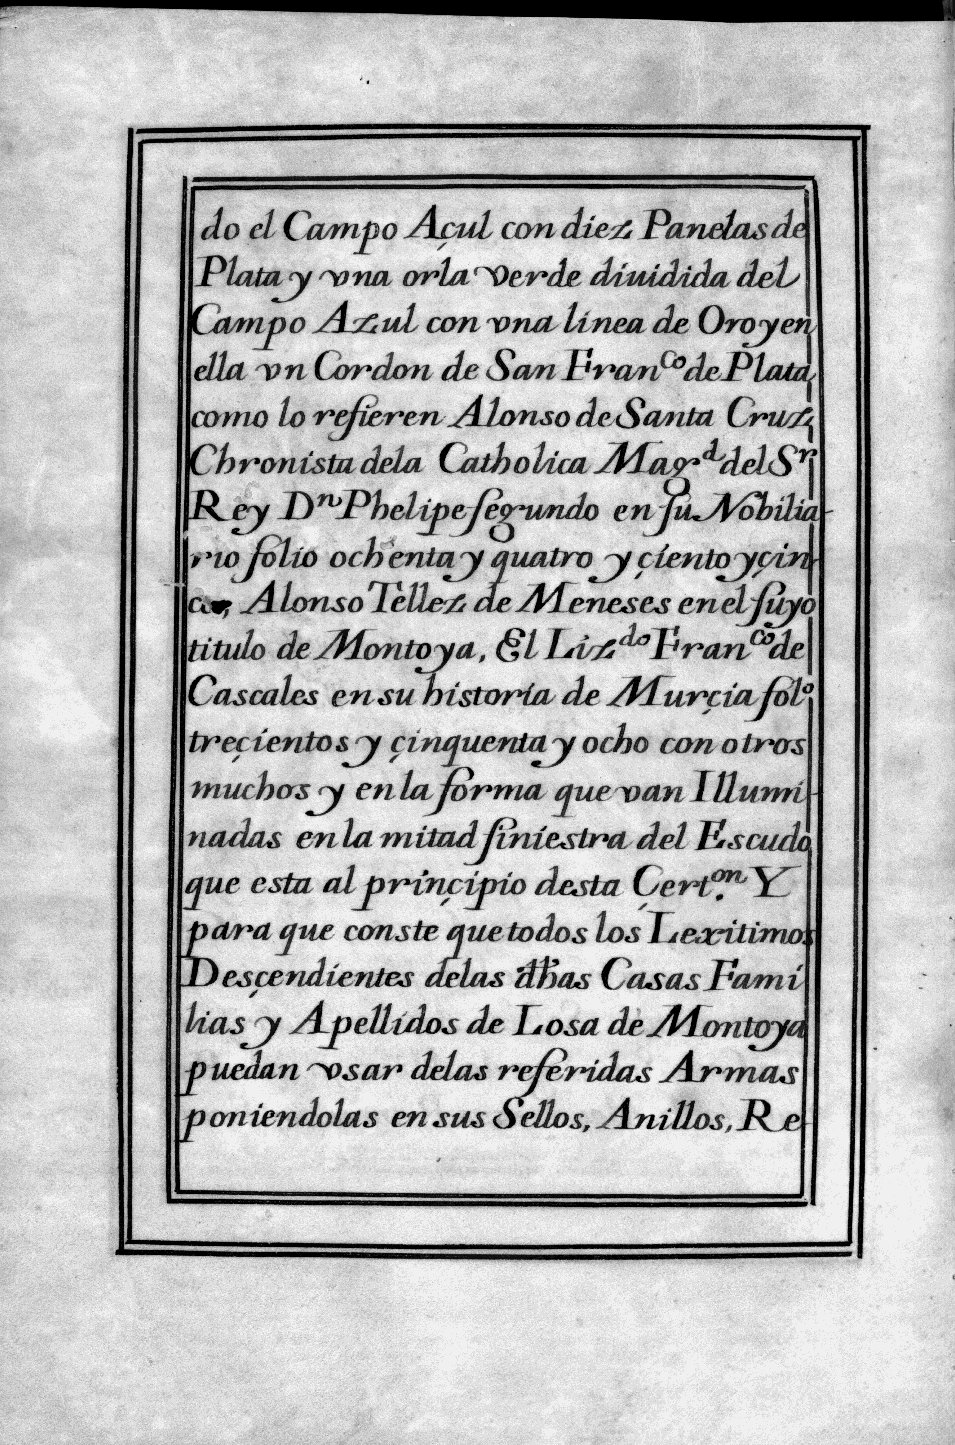 do el Campo Açul con diez Panelas de
Plata y vna orla verde diuidida del
Campo Azul con vna linea de Oro y en
ella vn Cordon de San Fran^co de Plata
como lo refieren Alonso de Santa Cruz
Chronista dela Catholica Mag^d del S^r
Rey D^n Phelipe ſegundo en ſu Nobilia-
rio ſolio ochenta y quatro y çiento y çin-
co, Alonso Tèllez de Meneses en el ſuyo
titulo de Montoya, El Liz^do Fran^co de
Cascales en su historia de Murçia fol^o
treçientos y çinquenta y ocho con otros
muchos y en la forma que van Illumi-
nadas en la mitad ſiniestra del Escudo
que esta al prinçipio desta Çert^on. Y
para que conste que todos los Lexitimos
Desçendientes delas dhas Casas Fami
lias y Apellidos de Losa de Montoya
puedan vsar delas referidas Armas
poniendolas en sus Sellos, Anillos, Re-